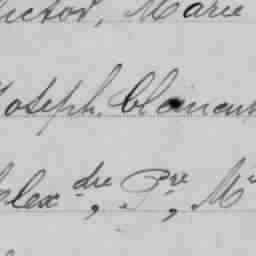 Victor, Marie
Joseph, Clément
Alexdre, Pre, M